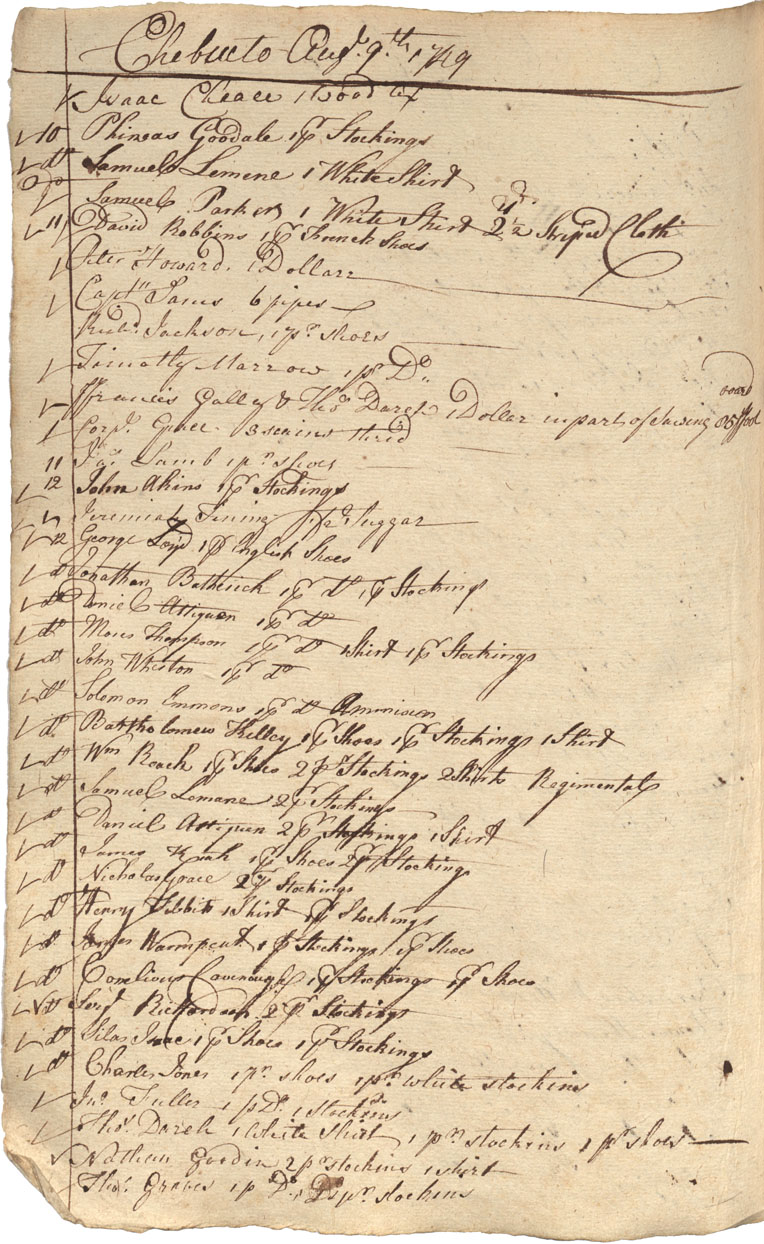 Chebucto Augt. 9th. 1749
Isaac Cheace 1 Wood
10 Phineas Goodale 1 pr Stockings
do Samuel Lemene 1 White Shirt
Do Samuel Parker 1 White Shirt 2 1/2 yds Striped Cloth
11 David Robbins 1 pr French Shoes
Peter Howard 1 Dollarr
Captn James 6 pipes
Richd. Jackson, 1 pr. shoes
Timothy Marrow 1 pr Do.
ffrancis Galley & Thos Darah 1 Dollar in part of sawing board
Corpl. Grace 3 scains thrid
11 Jas. Lamb 1 pr. shoes
12 John Akins 1 pr Stockings
Jeremiah Tining Suggar
12 George Loyd 1 pr English Shoes
do Jonathan Batherick 1 pr do 1 pr Stockings
do Daniel Attiquen 1 pr do
do Moses Thompson 1 pr do 1 Shirt 1 pr Stockings
do John Whiston 1 pr do
do Solomon Emmons 1 pr do
do Bartholomew Killey 1 pr Shoes 1 pr Stockings 1 Shirt
do Wm Roach 1 pr Shoes 2 pr Stockings 2 Shirts Regimentals
do Samuel Lemane 2 pr Stockings
do Daniel Attiquen 2 pr Stockings 1 Shirt
do James 1 pr Shoes 2 pr Stockings
do Nicholas Grace 2 pr Stockings
do Henry Tibbits 1 Shirt 1 pr Stockings
do James Warmpeut 1 pr Stockings 1 pr Shoes
do Cornelious Cavenough 1 pr Stockings 1 pr Shoes
do Serjt Richardson 2 pr Stockings
do Silas Isaac 1 pr Shoes 1 pr Stockings
do Charles Jones 1 pr shoes 1 pr. white stockins
Jno. Fuller 1 p Do. 1 Stockins
Thos. Darah 1 White Shirt, 1 pr stockins 1 pr shoes
Nathan Goodin 2 pr stockins 1 shirt
Thos. Graves 1 p Do. pr. stockins